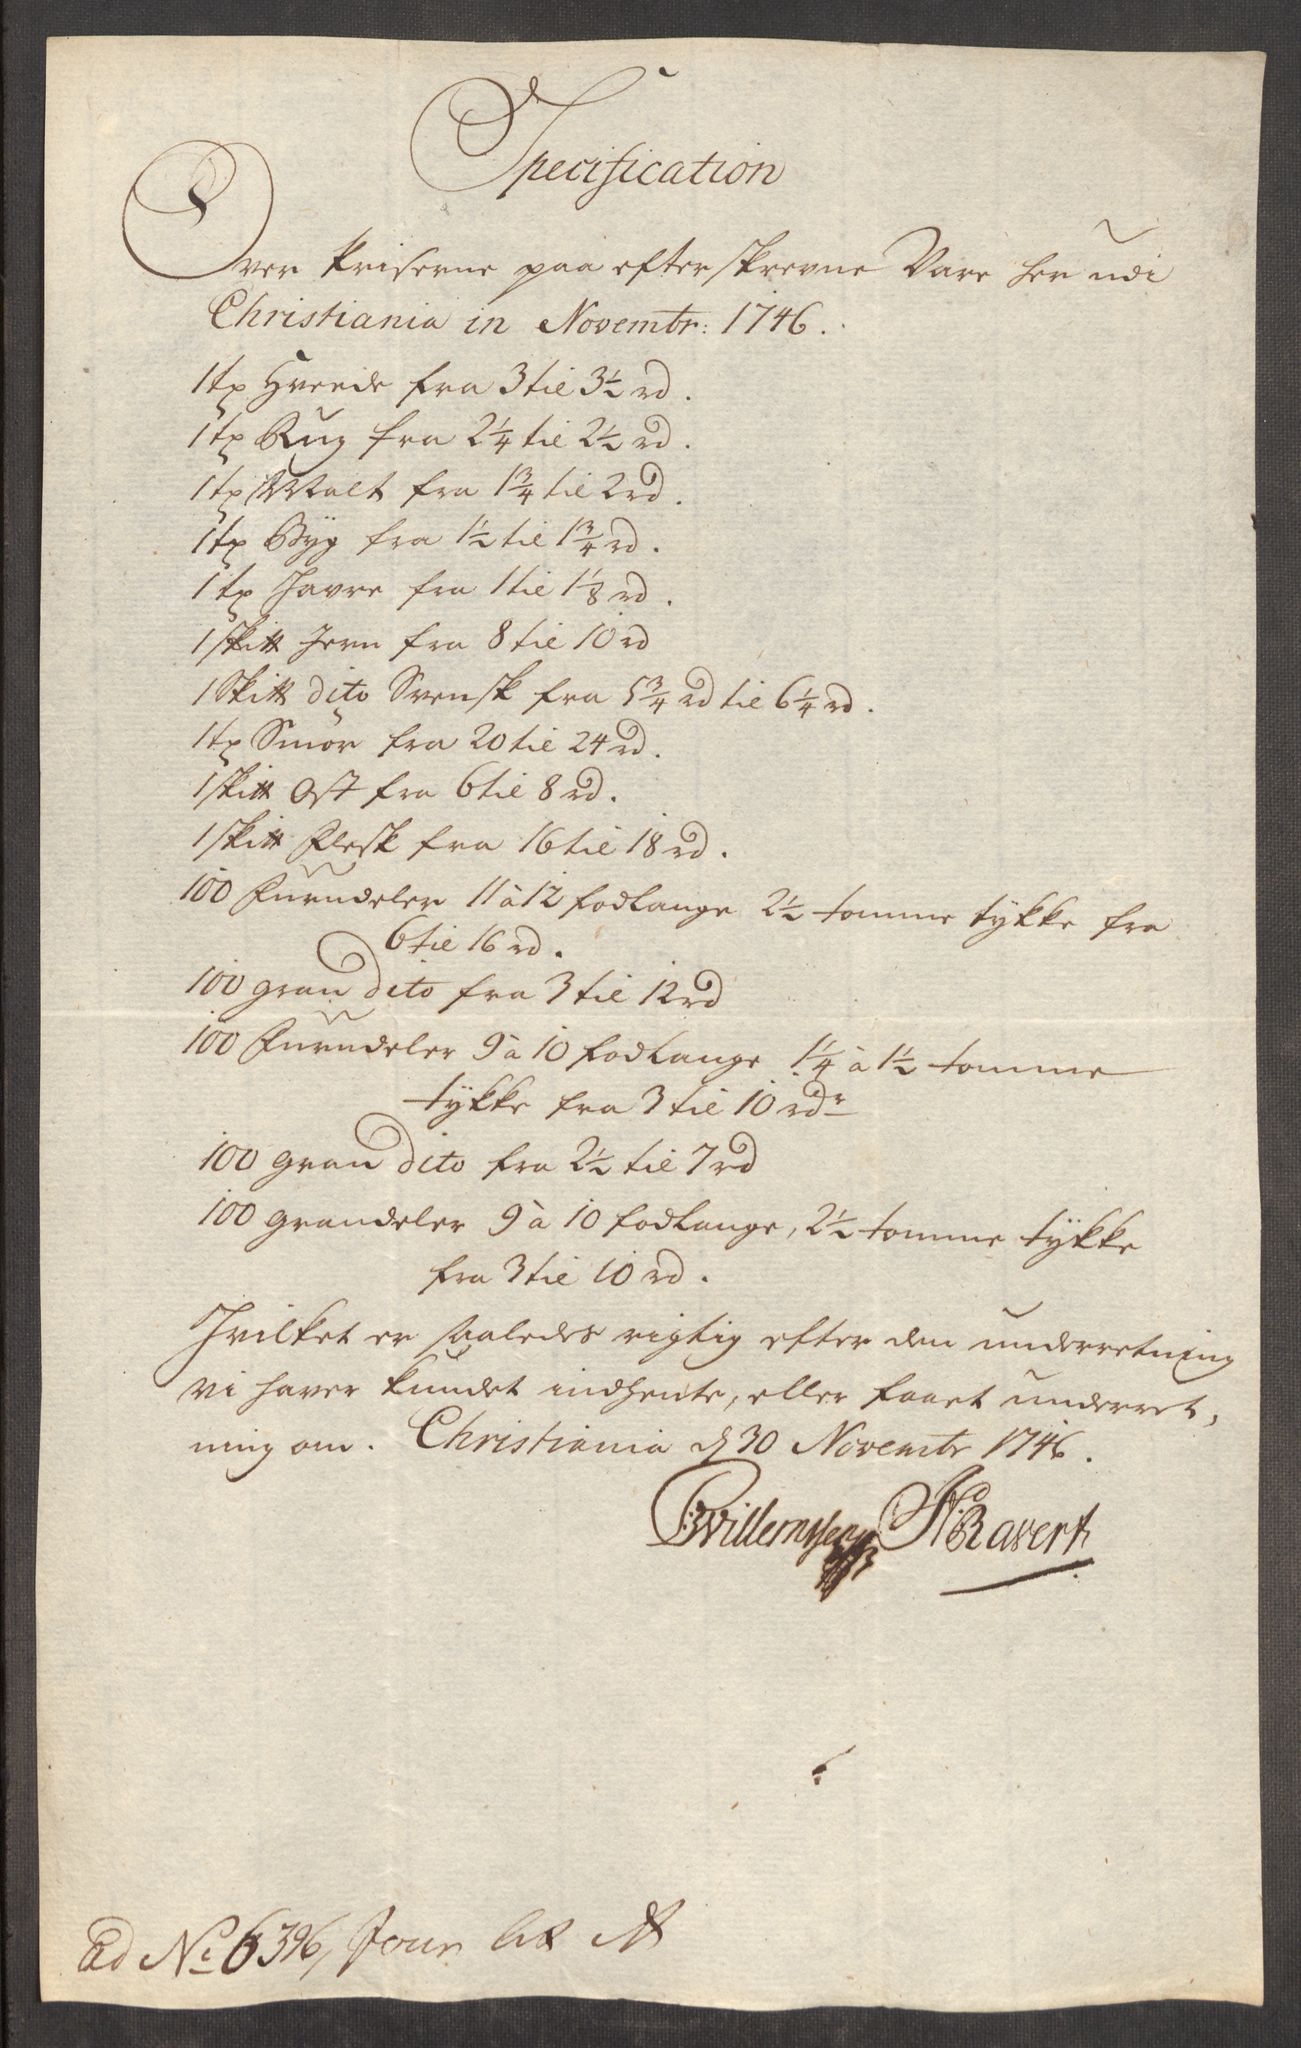 Specification
Over Priserne paa efterskrevne Vare her udi
Christiania in Novembr: 1746.
1 tø Hvede fra 3 til 3½ rd.
1 tø Rug fra 2¼ til 2½ rd.
1 tø Malt fra 1¾ til 2 rd.
1 tø Byg fra 1½ til 1¾ rd.
1 tø Havre fra 1 til 1⅛ rd.
1 skit Jern fra 8 til 10 rd
1 Skit dito Svensk fra 5¾ rd til 6¼ rd.
1 tø Smör fra 20 til 24 rd.
1 skit Ost fra 6 til 8 rd.
1 skit Flesk fra 16 til 18 rd.
100 Furudeler 11 à 12 fod lange 2½ tomme tÿkke fra
6 til 16 rd.
100 gran dito fra 3 til 12 rd
100 Furudeler 9 à 10 fod lange 1¼ à 1½ tomme
tÿkke fra 3 til 10 rdr
100 gran dito fra 2½ til 7 rd
100 grandeler 9 à 10 fod lange, 2½ tomme tÿkke
fra 3 til 10 rd.
Hvilket er saaledes rigtig efter den underretning
vi haver kundet indhente, eller faaet underret,
ning om. Christiania d 30 Novembr 1746.
Willemsen Ravert
Ad No 6396, Jour